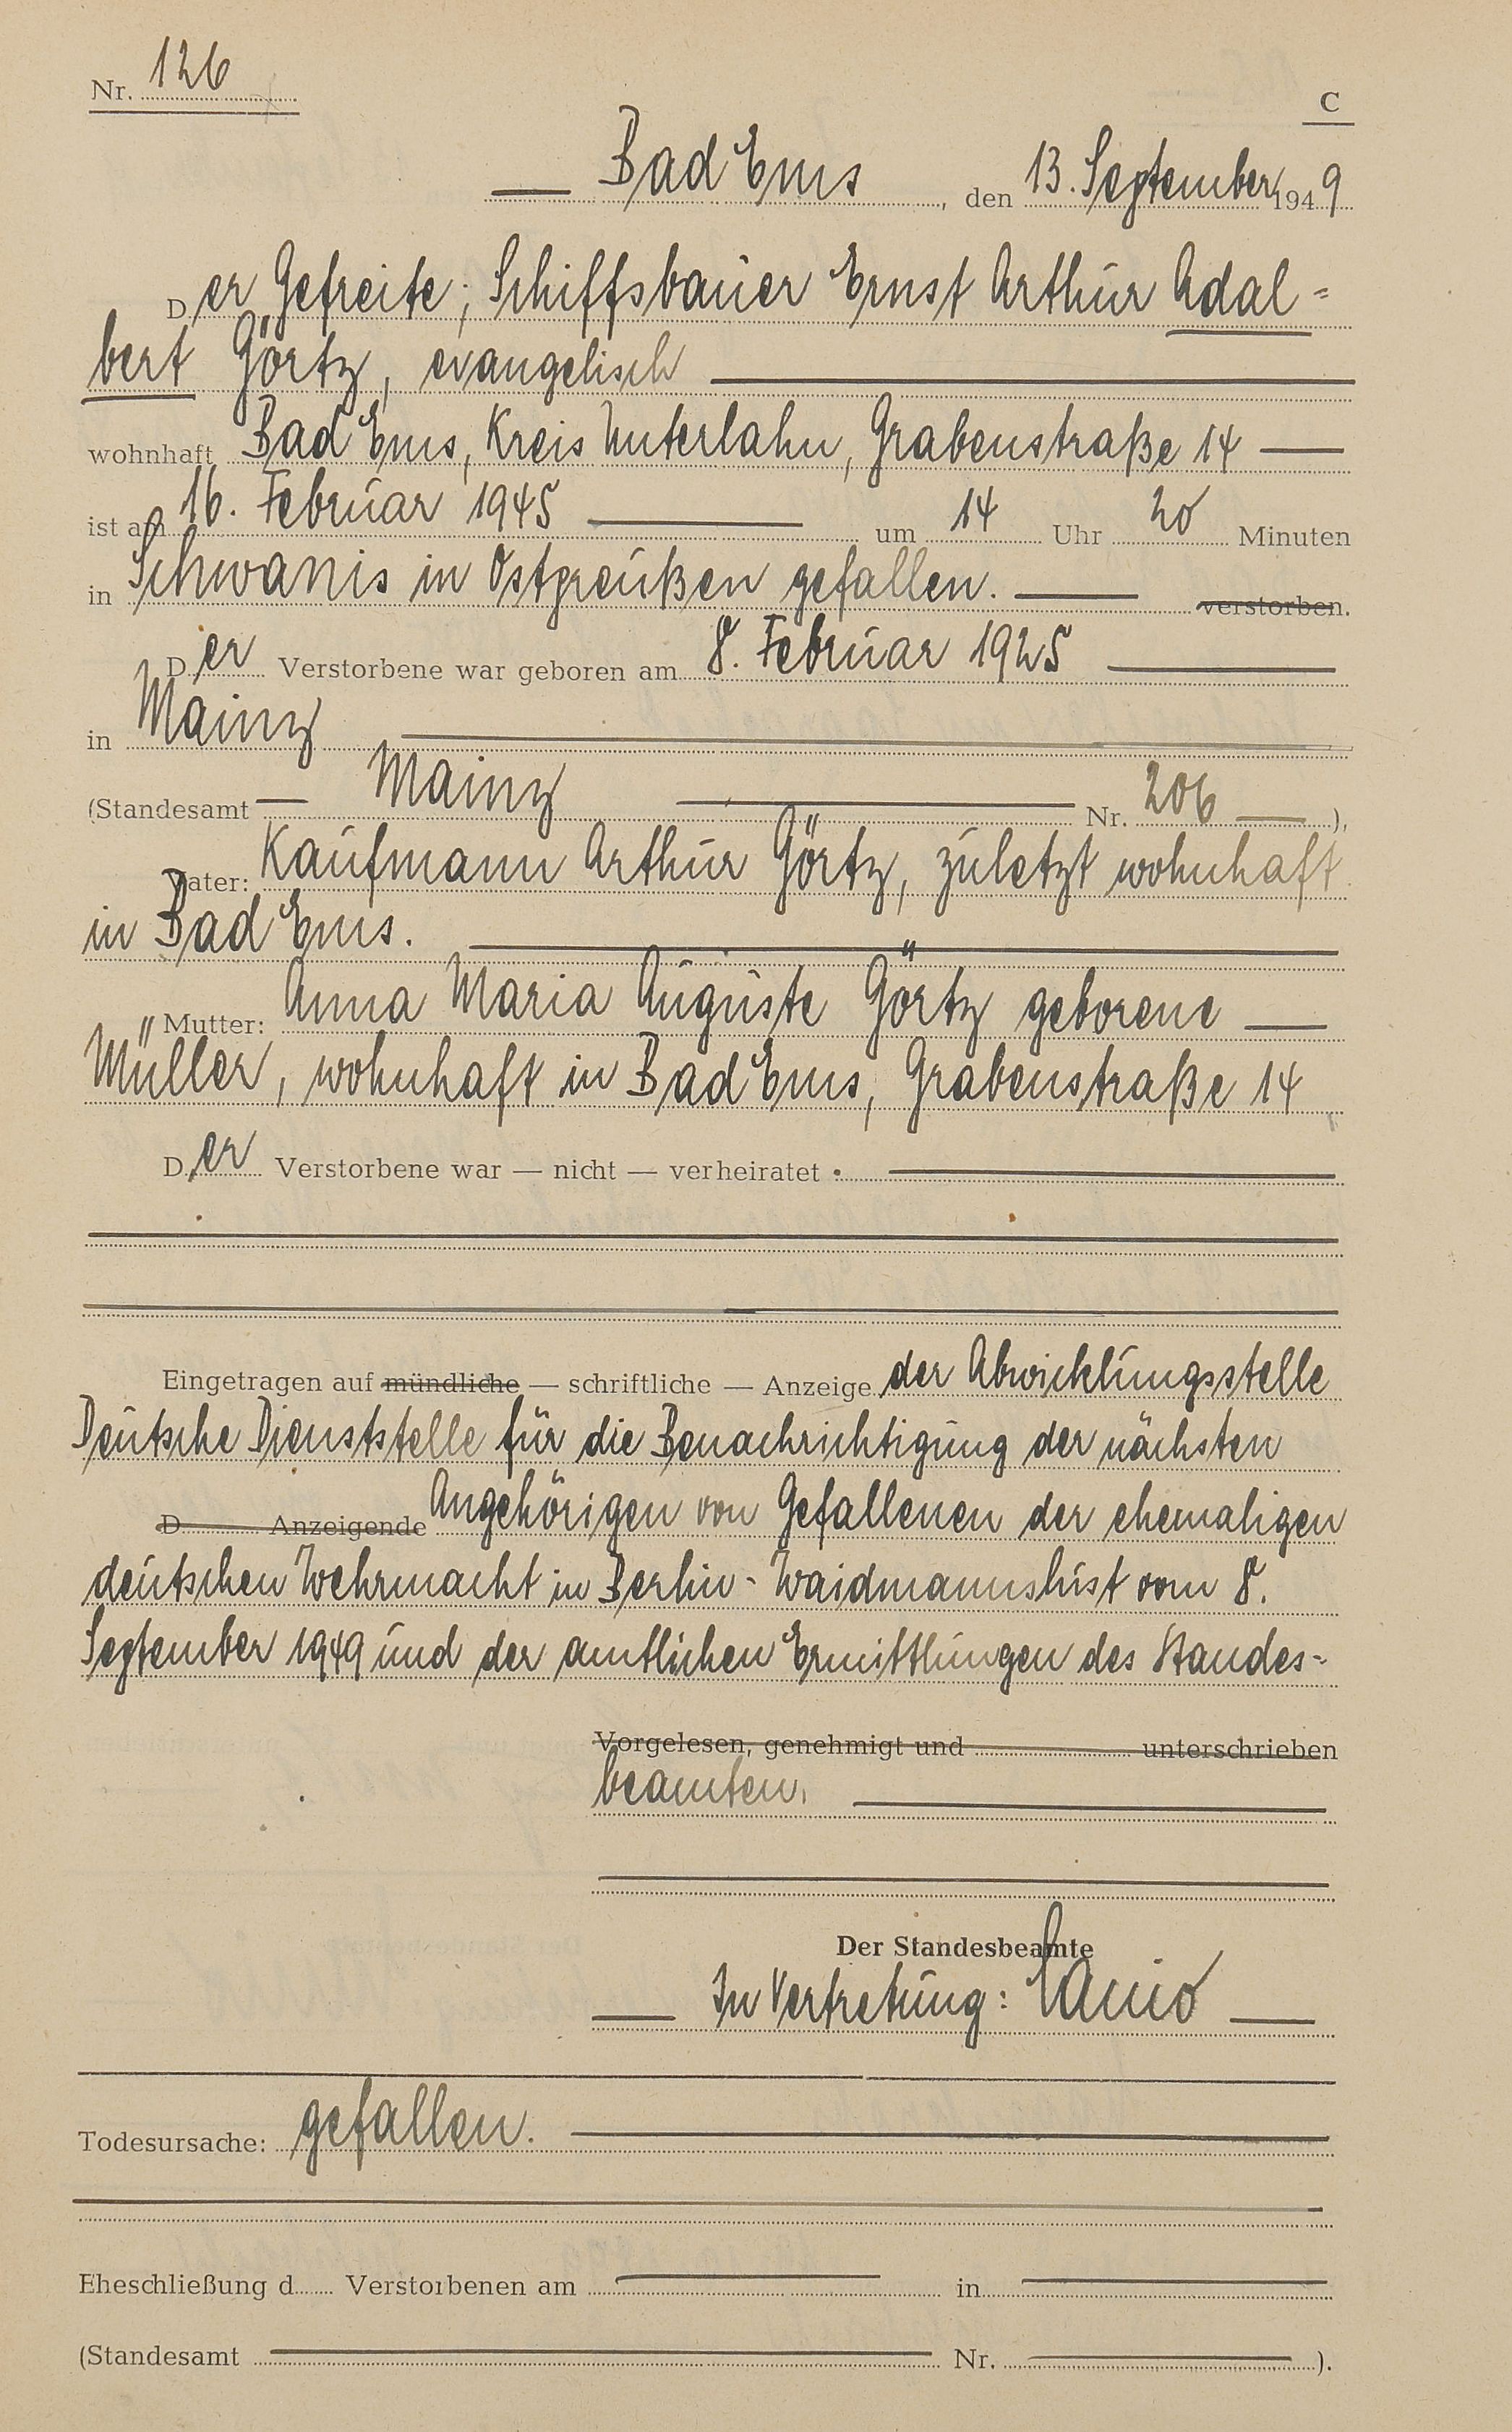 Nr. 126
C
Bad Ems, den 13. September 1949
Der Gefreite, Schiffsbauer Ernst Arthur Adal=
bert Görtz, evangelisch
wohnhaft Bad Ems, Kreis Unterlahn, Grabenstraße 14
ist am 16. Februar 1945 um 14 Uhr 20 Minuten
in Schwanis in Ostpreußen gefallen. verstorben.
Der Verstorbene war geboren am 8. Februar 1925
in Mainz
(Standesamt Mainz Nr. 206 ),
Vater: Kaufmann Arthur Görtz, zuletzt wohnhaft
in Bad Ems.
Mutter: Anna Maria Auguste Görtz geborene
Müller, wohnhaft in Bad Ems, Grabenstraße 14
Der Verstorbene war — nicht — verheiratet.
Eingetragen auf mündliche — schriftliche — Anzeige der Abwicklungsstelle
Deutsche Dienststelle für die Benachrichtigung der nächsten
D Anzeigende Angehörigen von Gefallenen der ehemaligen
deutschen Wehrmacht in Berlin-Waidmannslust vom 8.
September 1949 und der amtlichen Ermittlungen des Standes-
Vorgelesen, genehmigt und unterschrieben
beamten.
Der Standesbeamte
In Vertretung:
Todesursache: gefallen.
Eheschließung d Verstorbenen am in
(Standesamt Nr. ).